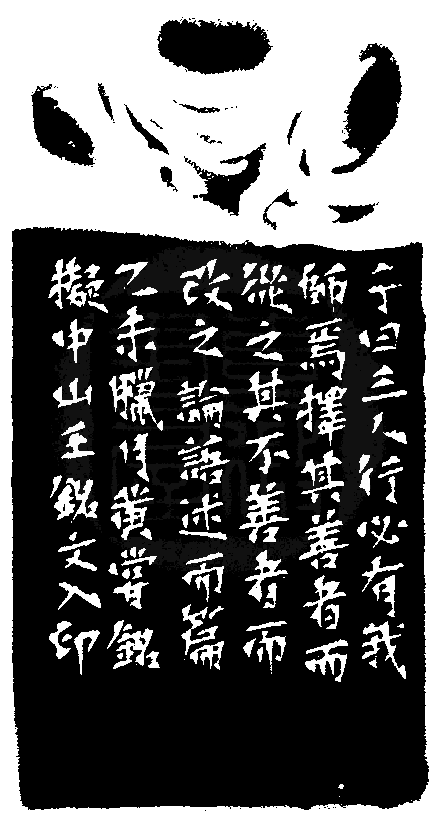 子曰三人行必有我
師焉擇其善者而
從之其不善者而
改之論語述而篇
乙未臘月黃嘗銘
擬中山王銘文入印